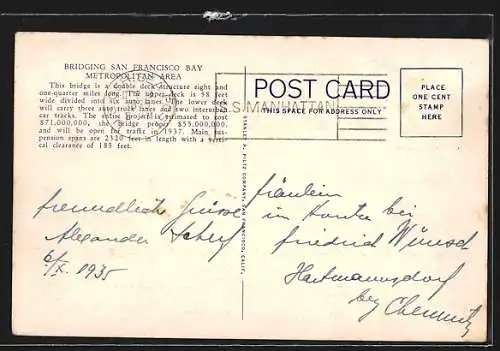 BRIDGING SAN FRANCISCO BAY
METROPOLITAN AREA
This bridge is a double deck structure eight and
one-quarter miles long. The upper deck is 58 feet
wide divided into six auto lanes. The lower deck
will carry three auto truck lanes and two interurban
car tracks. The entire project is estimated to cost
$71,000,000, the bridge proper $55,000,000,
and will be open for traffic in 1937. Main sus-
pension spans are 2310 feet in length with a verti-
cal clearance of 185 feet.
POST CARD
S.S. MANHATTAN
THIS SPACE FOR ADDRESS ONLY
PLACE
ONE CENT
STAMP
HERE
STANLEY A. PILTZ COMPANY, SAN FRANCISCO, CALIF.
freundliche Grüsse
Alexander
6/X. 1935
Fräulein
in bei
Friedrich Wünsch
Hartmannsdorf
bey Chemnitz